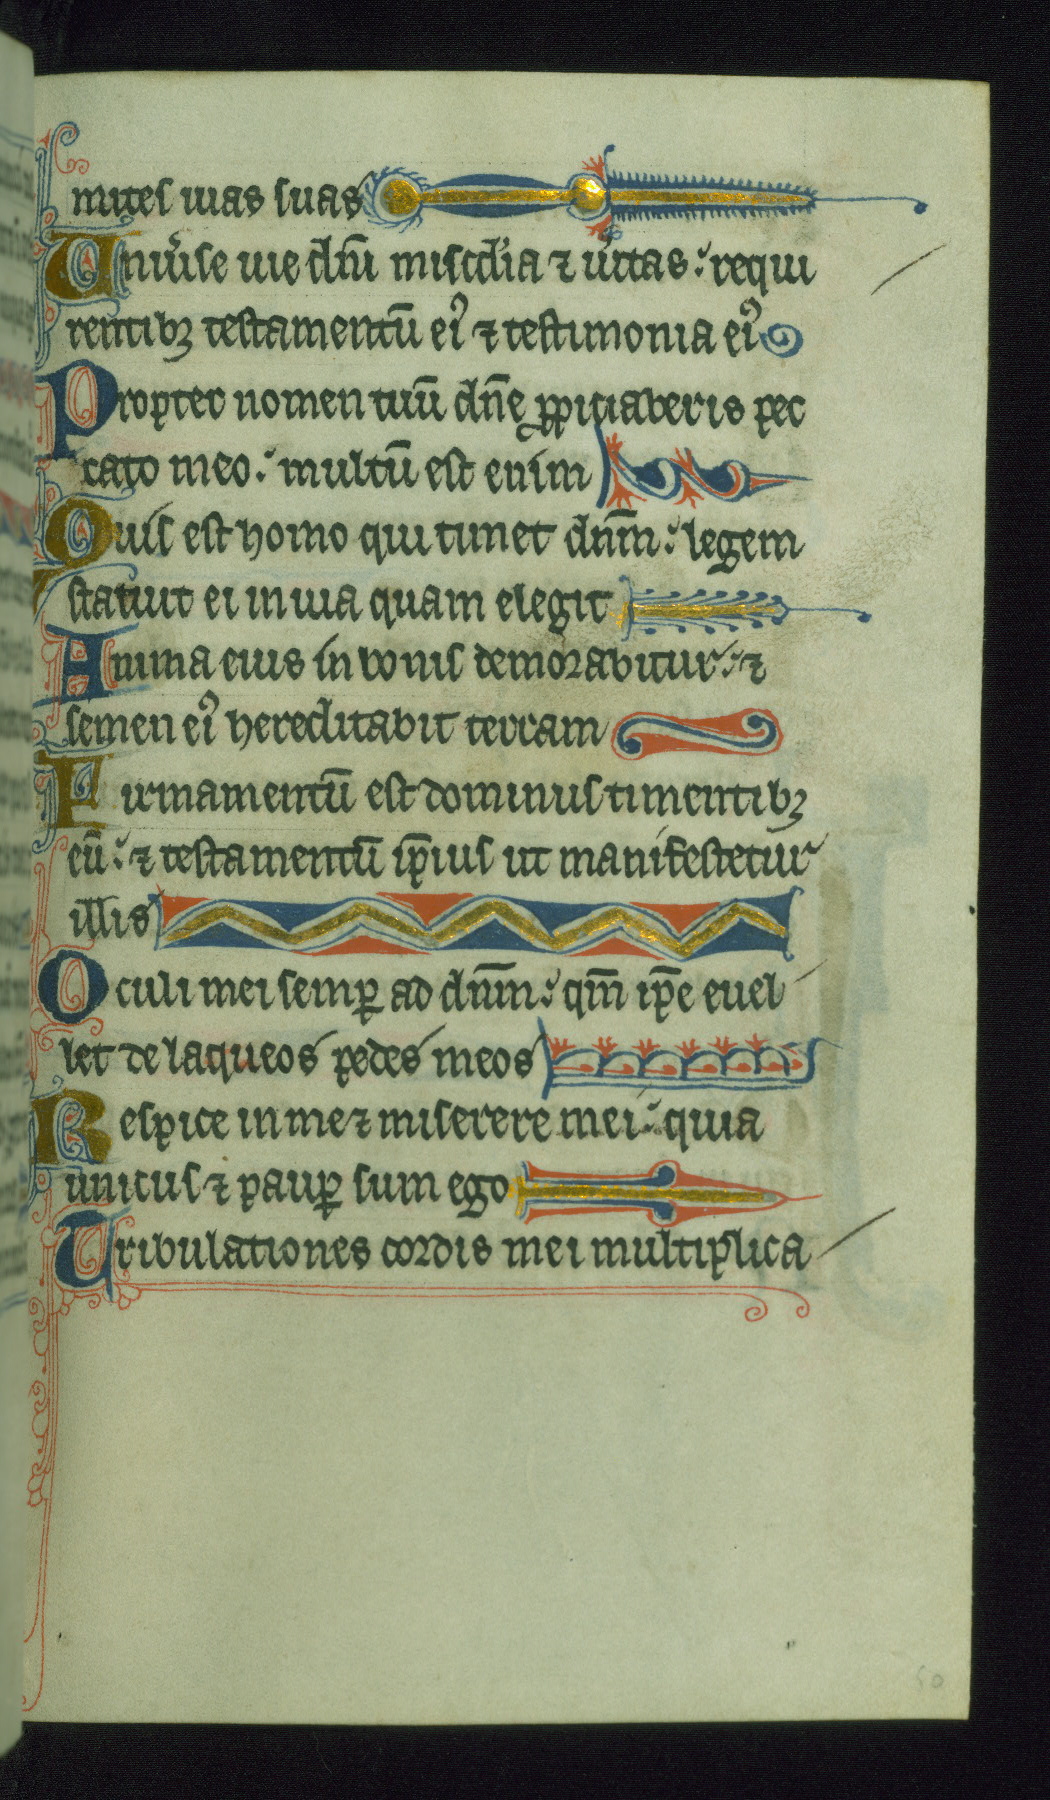 mites uias suas
Uniu̾se uie dñi misc̾dia ⁊ u̾itas: requi
rentibꝫ testamentū eiꝰ ⁊ testimonia eiꝰ
Propter nomen tuū dñe ꝓpitiaberis pec
cato meo: multū est enim
Quis est homo qui timet dñm: legem
statuit ei in uia quam elegit
Anima eius in bonis demorabitur: ⁊
semen eiꝰ hereditabit terram
Firmamentū est dominus timentibꝫ
eū: ⁊ testamentū ip̄ius ut manifestetur
illis
Oculi mei semꝑ ad dñm: qm̄ ip̄e euel
let de laqueos pedes meos
Respice in me ⁊ miserere mei: quia
unicus ⁊ pauꝑ sum ego
Tribulationes cordis mei multiplica
50